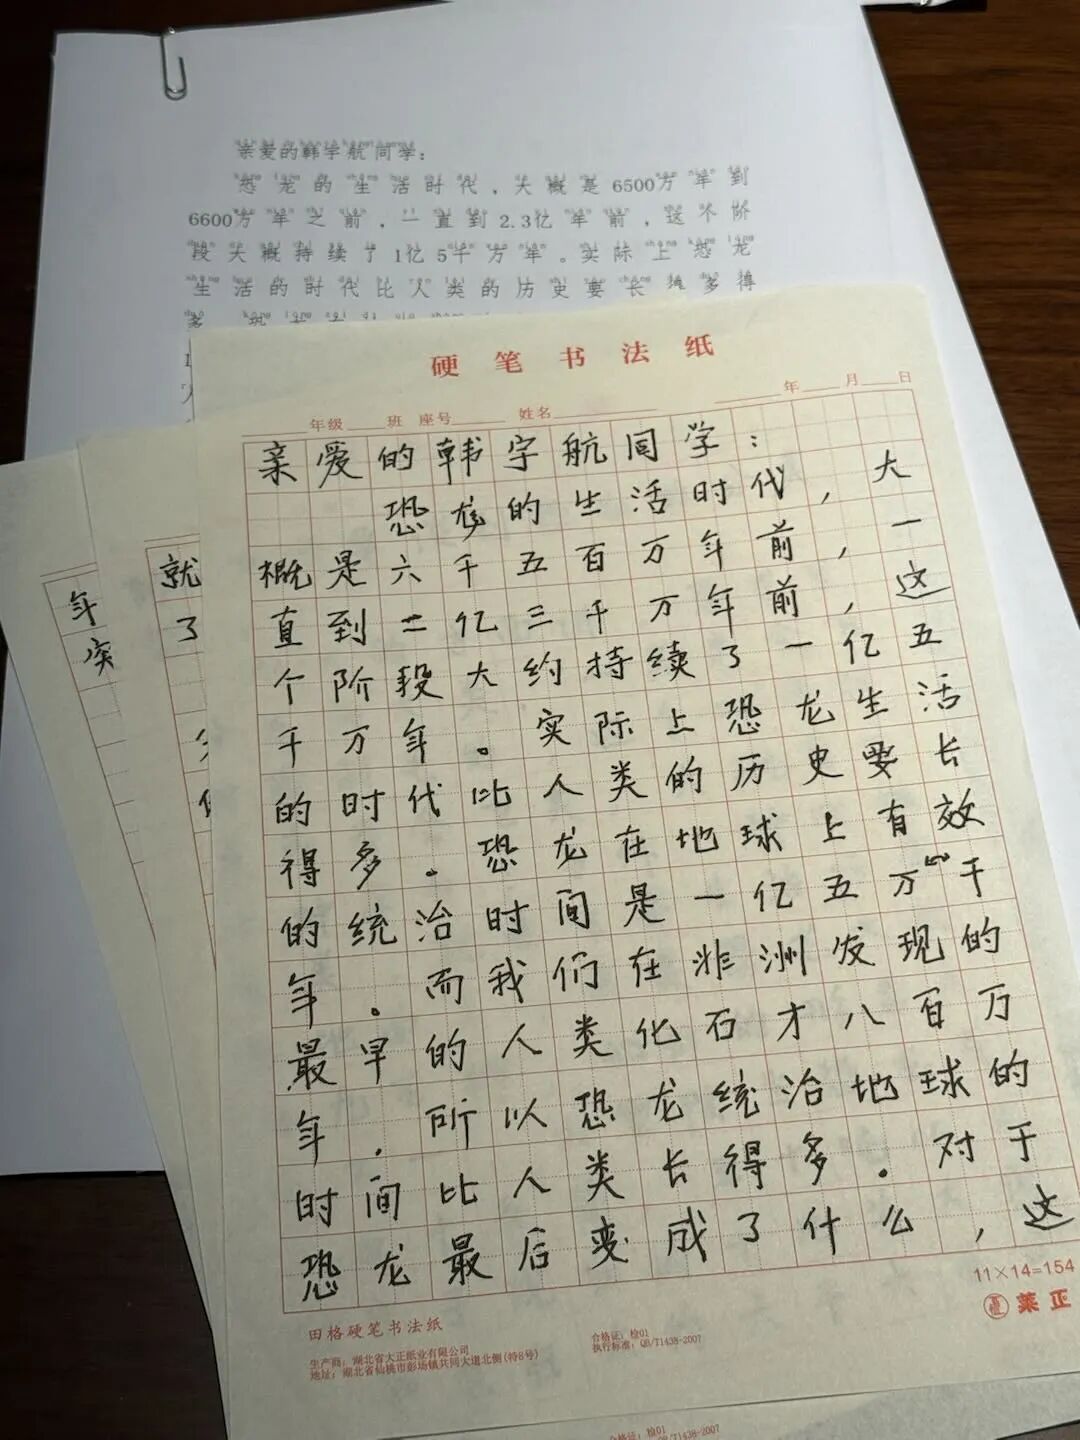 亲爱的韩宇航同学：
恐龙的生活时代，大概是6500万年到
6600万年之前，一直到2.3亿年前，这个阶
段大概持续了1亿5千万年。实际上恐龙
生活的时代比人类的历史要长 多得
多
硬笔书法纸
年级 班 座号 姓名 年 月 日
亲爱的韩宇航同学：
恐龙的生活时代，大
概是六千五百万年前，一
直到二亿三千万年前，这
个阶段大约持续了一亿五
千万年。实际上恐龙生活
的时代比人类的历史要长
得多。恐龙在地球上有效
的统治时间是一亿五万千
年。而我们在非洲发现的
最早的人类化石才八百万
年，所以恐龙统治地球的
时间比人类长得多。对于
恐龙最后变成了什么，这
11×14=154
莱正
田格硬笔书法纸
生产商：湖北省大正纸业有限公司
地址：湖北省仙桃市彭场镇共同大道北侧(特8号)
合格证：检01
执行标准：QB/T1438-2007
就
了
年
突
合格证：检01
QB/T1438-2007